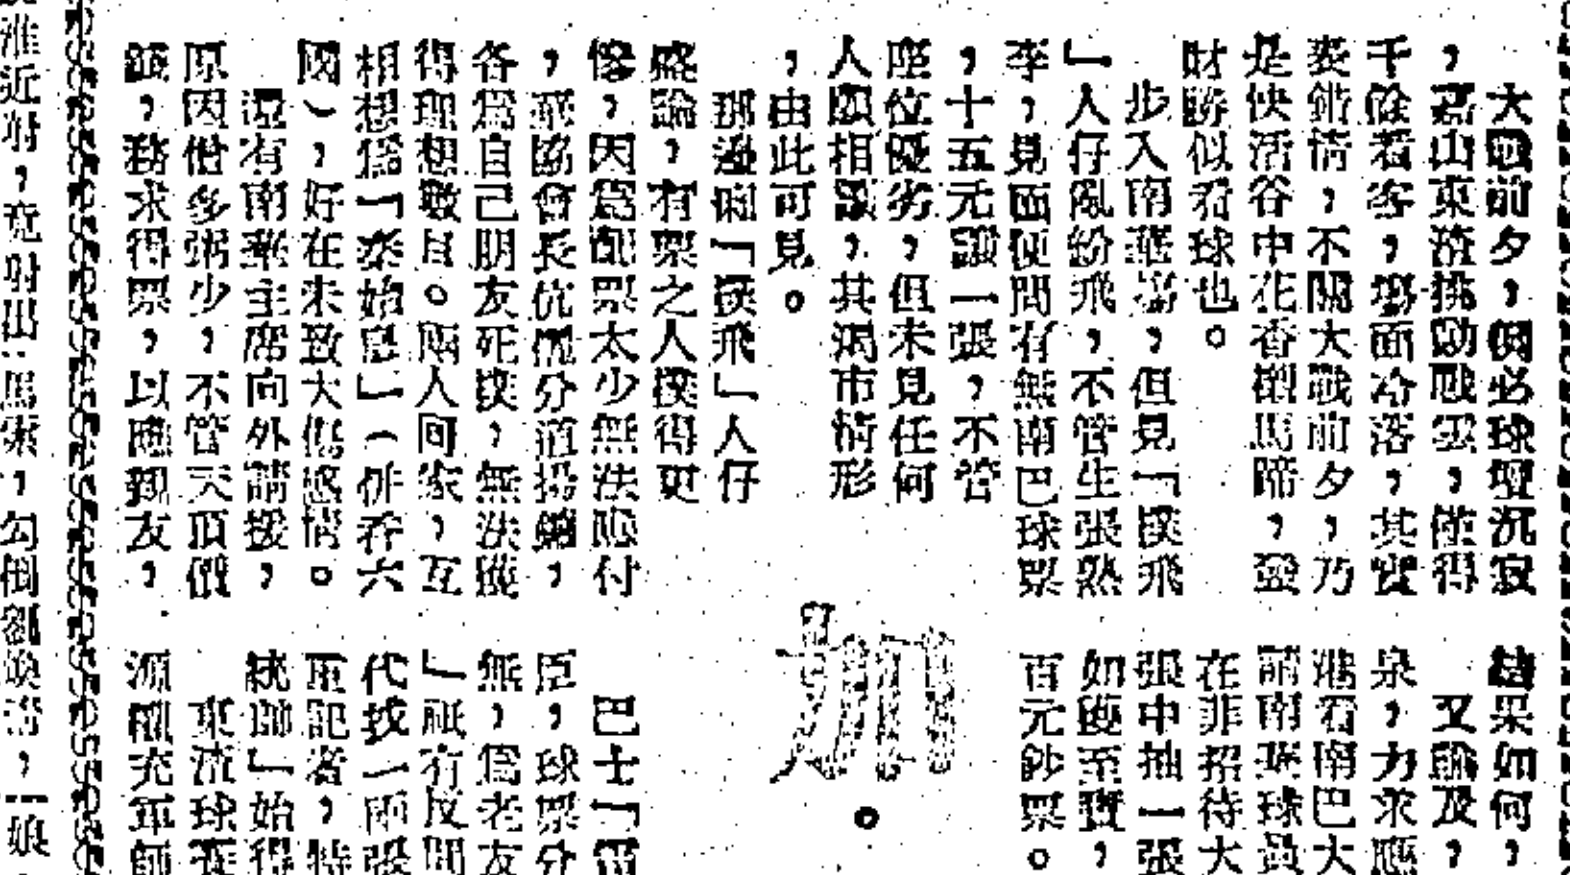 大戰前夕，例必球壇沉寂
，嘉山東渣挑動戰雲，僅得
千餘看客，場面冷落，其實
麥錯情，不關大戰前夕，乃
是快活谷中花香馬蹄，發
財勝似看球也。
步入南華場，但見「撲飛
」人仔亂紛飛，不管生張熟
李，見面便問有無南巴球票
，十五元讓一張，不管
座位優劣，但未見任何
人願相讓，其渴市情形
，由此可見。
那邊廂「撲飛」人仔
盛論，有票之人撲得更
慘，因為配票太少無法應付
，華協會長伉儷分道揚鑣，
各為自己朋友死撲，無法獲
得理想數目。兩人同家，互
相想為「秦始皇」（併吞六
國），好在未致大傷感情。
還有南華主席向外請援，
原因僧多粥少，不管天頂價
錢，務求得票，以應親友，
結果如何，
又聞及，
泉，力求應
港看南巴大
請南華球員
在菲招待大
張中抽一張
如獲至寶，
百元鈔票。
加
。
巴士「雷
臣，球票分
無，為老友
」祇有反間
代找一兩張
記者，特
統帥」始得
東渣球賽
源充軍師
淮近射，竟射出；馬索，勾倒劉煥清，一娘